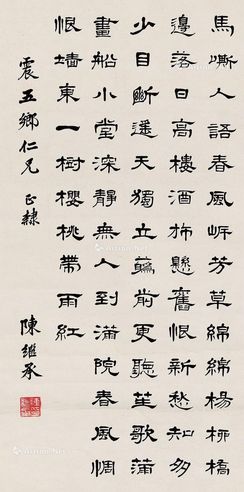 馬嘶人語春風岸芳草綿綿楊柳橋
邊落日高樓酒旆懸舊恨新愁知多
少目斷遙天獨立蘤前更聽笙歌滿
畫船小堂深靜無人到滿院春風惆
悵墻東一樹櫻桃帶雨紅
震五鄉仁兄 正隸 陳繼承